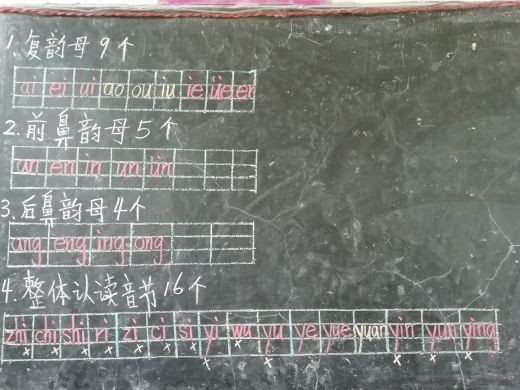 1.复韵母9个
ai ei ui ao ou iu ie üe er
2.前鼻韵母5个
an en in un ün
3.后鼻韵母4个
ang eng ing ong
4.整体认读音节16个
zhi chi shi ri zi ci si yi wu yu ye yue yuan yin yun ying